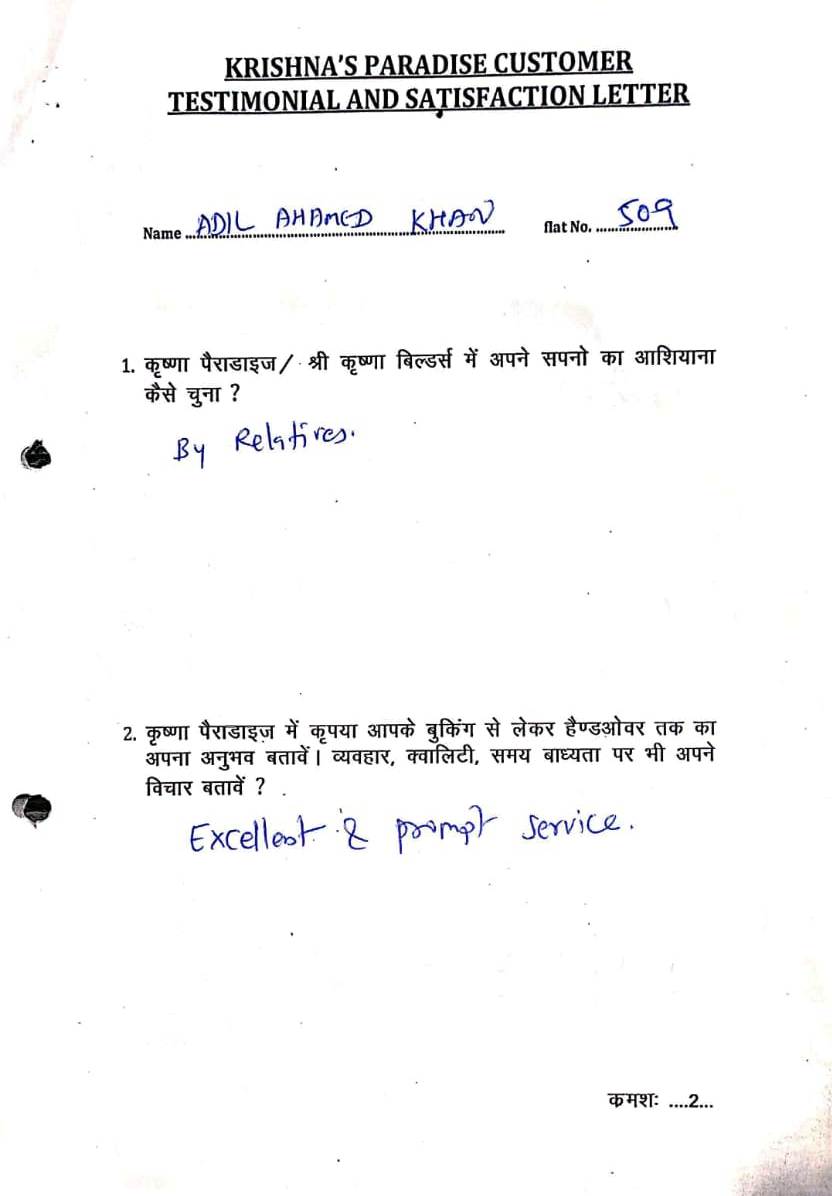 KRISHNA'S PARADISE CUSTOMER
TESTIMONIAL AND SATISFACTION LETTER
Name ... ADIL AHAMED KHAN flat No. ... 509
1. कृष्णा पैराडाइज / श्री कृष्णा बिल्डर्स में अपने सपनो का आशियाना
कैसे चुना ?
By Relatives.
2. कृष्णा पैराडाइज़ में कृपया आपके बुकिंग से लेकर हैण्डओवर तक का
अपना अनुभव बतावें। व्यवहार, क्वालिटी, समय बाध्यता पर भी अपने
विचार बतावें ?
Excellent & prompt service.
कमशः ....2...